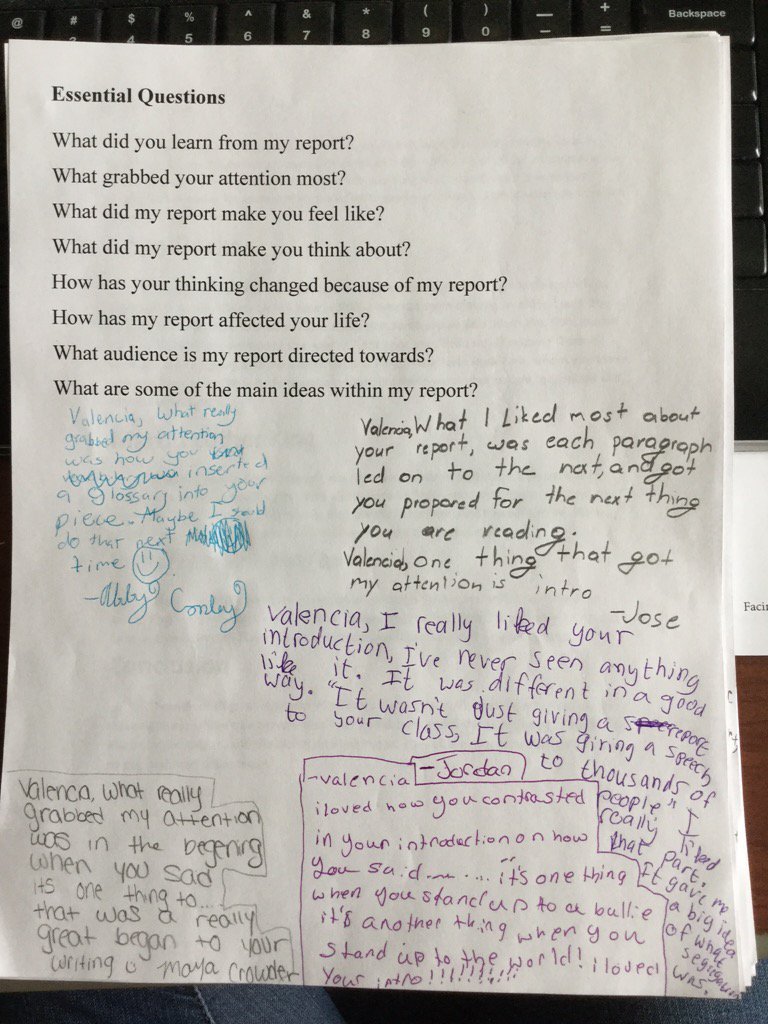 @ # $ % ^ & * ( ) — + Backspace
3 4 5 6 7 8 9 0 - =
Essential Questions
What did you learn from my report?
What grabbed your attention most?
What did my report make you feel like?
What did my report make you think about?
How has your thinking changed because of my report?
How has my report affected your life?
What audience is my report directed towards?
What are some of the main ideas within my report?
Valencia, What really
grabbed my attention
was how you
inserted
a glossary into your
piece. Maybe I could
do that next
time
-Abby Conley
Valencia, What I Liked most about
your report, was each paragraph
led on to the next, and got
you prepared for the next thing
you are reading.
Valencia, one thing that got
my attention is intro
-Jose
Facin
Valencia, I really liked your
introduction, I've never seen anything
like it. It was different in a good
way. "It wasn't just giving a report
to your class, It was giving a speech
to thousands of
people" I
really liked
that part.
It gave me
a big idea
of what
segregation
was.
-Jordan
-valencia
i loved how you contrasted
in your introduction on how
you said........ it's one thing
when you stand up to a bullie
it's another thing when you
stand up to the world! i loved
your intro!!!!!!!!!!
Valenca, what really
grabbed my attention
was in the begening
when you sad
its one thing to...
that was a really
great began to your
writing Maya Crowder